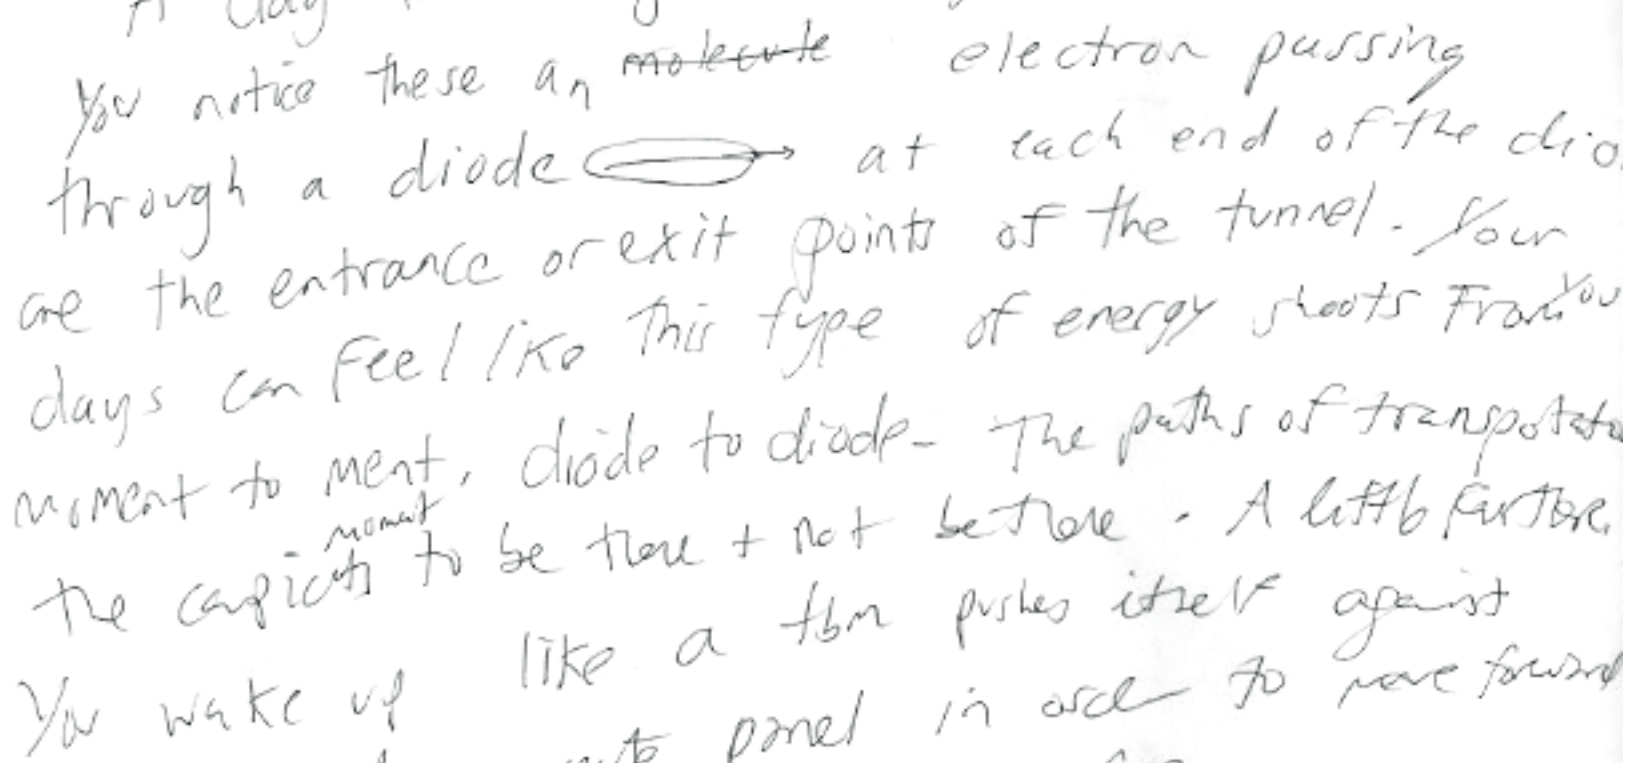 A day
You notice these an molecule electron passing
through a diode at each end of the dio
are the entrance or exit points of the tunnel. Your
days can Feel like this type of energy shoots From You
moment to ment, diode to diode- The paths of transpotato
moment
the to be there + not be there. A little Farther.
You wake up like a tbm pushes itself against
panel in order to move forward